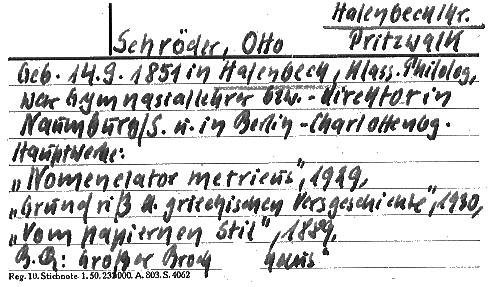 Halenbeck/Kr.
Schröder, Otto Pritzwalk
Geb. 14.9.1851 in Halenbeck, Klass. Philolog,
war Gymnasiallehrer bzw. -direktor in
Naumburg/S. u. in Berlin-Charlottenbg.
Hauptwerke:
"Nomenclator metricus", 1929,
"Grundriß d. griechischen Versgeschichte", 1930,
"Vom papiernen Stil", 1889,
Großer Brock
Reg. 10. Stichnote. 1. 50. A. 803. S. 4062